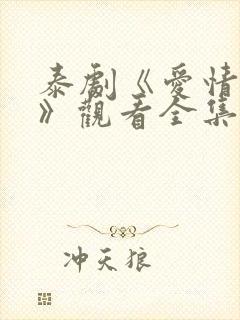 泰劇《愛情
》觀看全集
冲天狼